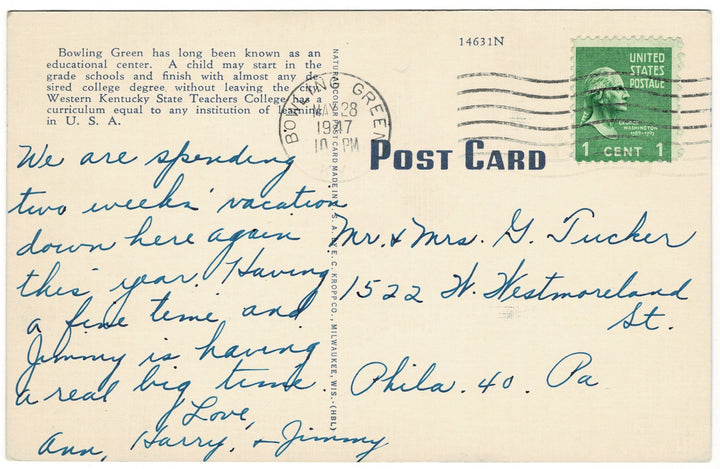 Bowling Green has long been known as an
educational center. A child may start in the
grade schools and finish with almost any de-
sired college degree without leaving the city.
Western Kentucky State Teachers College has a
curriculum equal to any institution of learning
in U. S. A.
14631N
NATURAL COLOR POST CARD MADE IN U. S. A. BY E. C. KROPP CO., MILWAUKEE, WIS. (HBL)
BOWLING GREEN
MAY 28
1947
10 PM
UNITED
STATES
POSTAGE
GEORGE
WASHINGTON
1789-1797
1 CENT 1
POST CARD
We are spending
two weeks' vacation
down here again
this year. Having
a fine time and
Jimmy is having
a real big time.
Love,
Ann, Harry, & Jimmy
Mr. & Mrs. G. Tucker
1522 W. Westmoreland
St.
Phila. 40. Pa